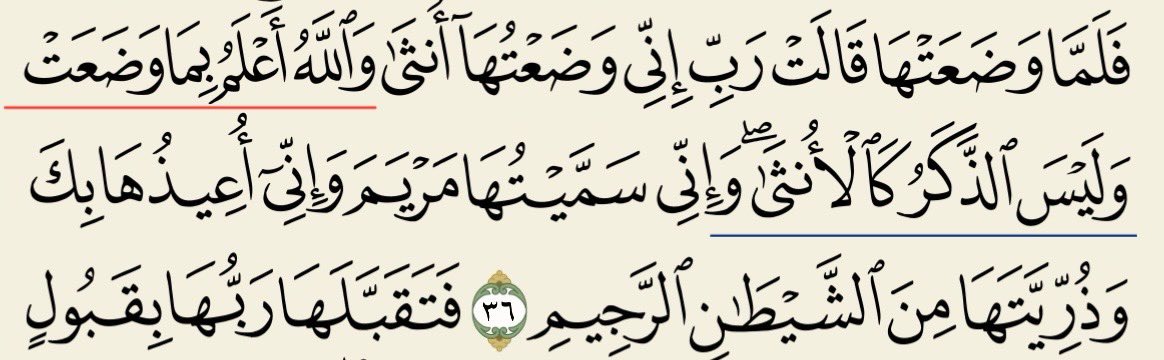 فَلَمَّا وَضَعَتْهَا قَالَتْ رَبِّ إِنِّي وَضَعْتُهَآ أُنثَىٰ وَٱللَّهُ أَعْلَمُ بِمَا وَضَعَتْ
وَلَيْسَ ٱلذَّكَرُ كَٱلْأُنثَىٰۖ وَإِنِّي سَمَّيْتُهَا مَرْيَمَ وَإِنِّيٓ أُعِيذُهَا بِكَ
وَذُرِّيَّتَهَا مِنَ ٱلشَّيْطَٰنِ ٱلرَّجِيمِ ٣٦ فَتَقَبَّلَهَا رَبُّهَا بِقَبُولٍ